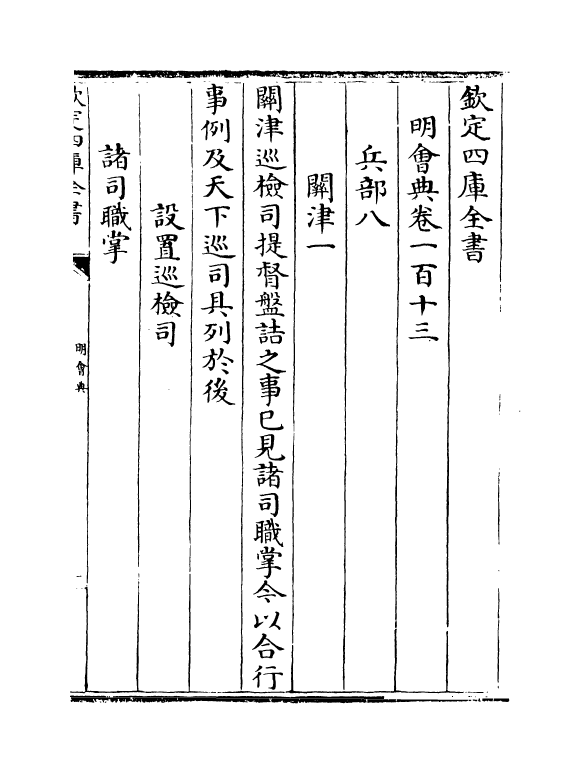 欽定四庫全書
明會典卷一百十三
兵部八
關津一
關津巡檢司提督盤詰之事已見諸司職掌今以合行
事例及天下巡司具列於後
設置巡檢司
諸司職掌
欽定四庫全書
明會典